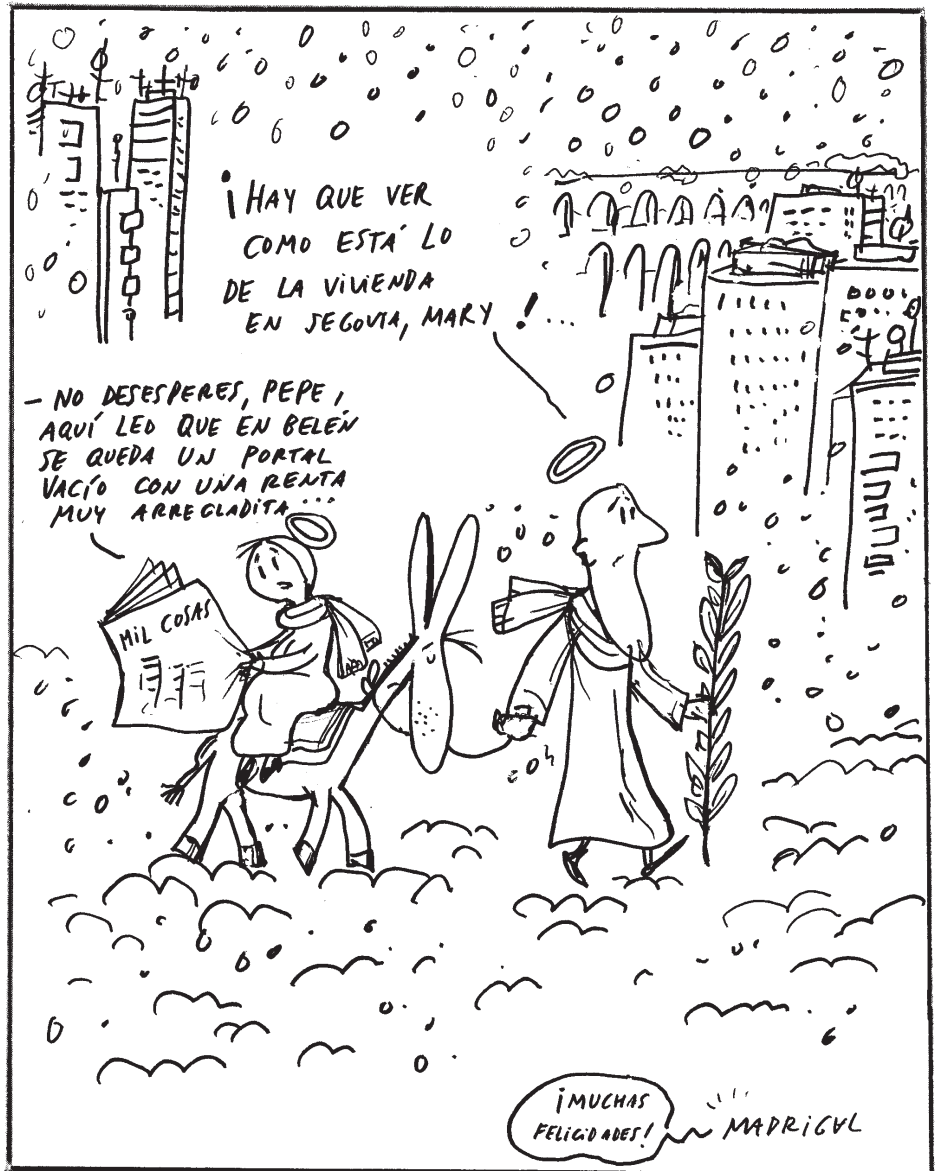 ¡HAY QUE VER
COMO ESTÁ LO
DE LA VIVIENDA
EN SEGOVIA, MARY !...
- NO DESESPERES, PEPE,
AQUÍ LEO QUE EN BELÉN
SE QUEDA UN PORTAL
VACÍO CON UNA RENTA
MUY ARREGLADITA...
MIL COSAS
¡MUCHAS
FELICIDADES!
MADRIGAL